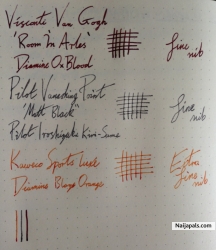 Visconti Van Gogh
'Room In Arles'
Diamine Ox Blood
fine
nib
Pilot Vanishing Point
'Matt Black'
Pilot Iroshizuku Kiri-Same
fine
nib
Kaweco Sports Luxe
Diamine Blaze Orange
Extra
fine
nib
Najapals.com